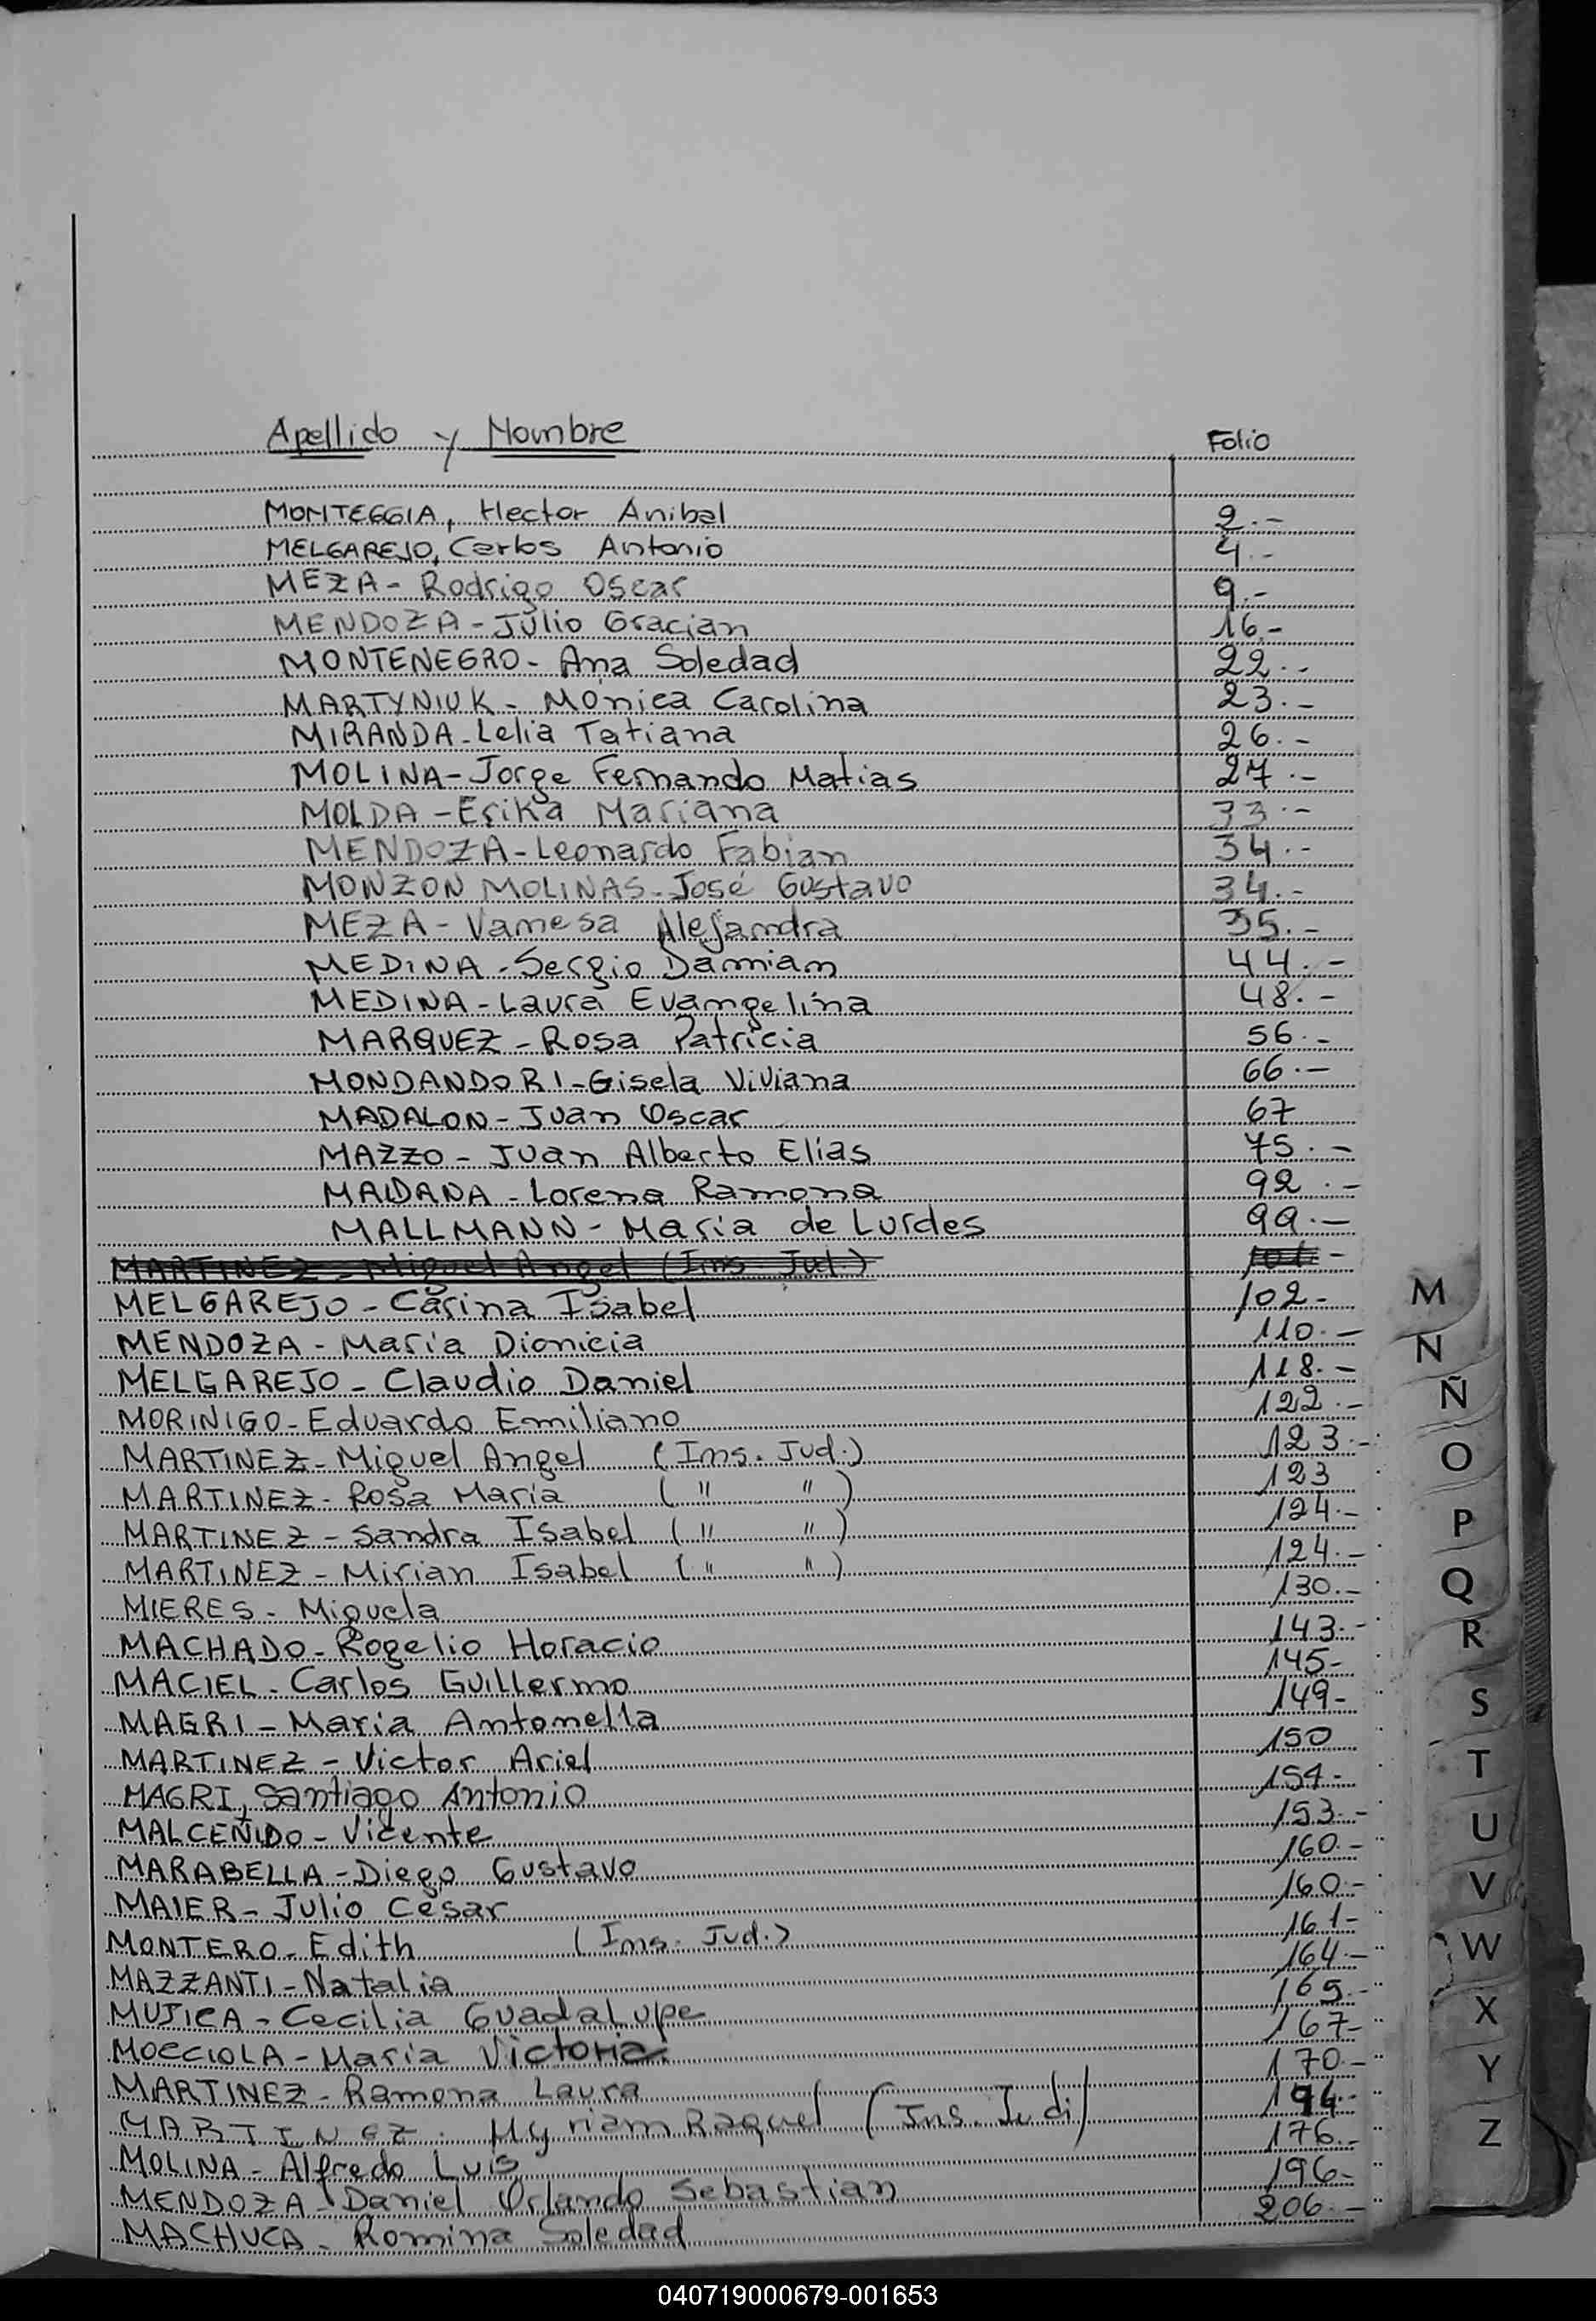 Apellido y Nombre Folio
MONTEGGIA, Hector Anibal 2.-
MELGAREJO, Carlos Antonio 4.-
MEZA - Rodrigo Oscar 9.-
MENDOZA - Julio Gracian 16.-
MONTENEGRO - Ana Soledad 22.-
MARTYNIUK - Mónica Carolina 23.-
MIRANDA - Lelia Tatiana 26.-
MOLINA - Jorge Fernando Matias 27.-
MOLDA - Erika Mariana 33.-
MENDOZA - Leonardo Fabian 34.-
MONZON MOLINAS - José Gustavo 34.-
MEZA - Vanesa Alejandra 35.-
MEDINA - Sergio Damian 44.-
MEDINA - Laura Evangelina 48.-
MARQUEZ - Rosa Patricia 56.-
MONDANDORI - Gisela Viviana 66.-
MADALON - Juan Oscar 67
MAZZO - Juan Alberto Elias 75.-
MALDANA - Lorena Ramona 92.-
MALLMANN - Maria de Lurdes 99.-
MARTINEZ - Miguel Angel (Ins. Jud.)
MELGAREJO - Carina Isabel 102-
MENDOZA - Maria Dionicia 110.-
MELGAREJO - Claudio Daniel 118.-
MORINIGO - Eduardo Emiliano 122.-
MARTINEZ - Miguel Angel (Ins. Jud.) 123.-
MARTINEZ - Rosa Maria ( " " ) 123
MARTINEZ - Sandra Isabel ( " " ) 124.-
MARTINEZ - Mirian Isabel ( " " ) 124.-
MIERES - Miguela 130.-
MACHADO - Rogelio Horacio 143.-
MACIEL - Carlos Guillermo 145-
MAGRI - Maria Antonella 149-
MARTINEZ - Victor Ariel 150
MAGRI, Santiago Antonio 151-
MALCEÑIDO - Vicente 153.-
MARABELLA - Diego Gustavo 160.-
MAIER - Julio Cesar 160.-
MONTERO - Edith (Ins. Jud.) 161-
MAZZANTI - Natalia 164.-
MUJICA - Cecilia Guadalupe 165.-
MOCCIOLA - Maria Victoria. 167-
MARTINEZ - Ramona Laura 170.-
MARTINEZ. Myriam Raquel (Ins. Judi)
MOLINA - Alfredo Luis 176.-
MENDOZA - Daniel Orlando Sebastian 196-
MACHUCA - Romina Soledad 206.-
M
N
Ñ
O
P
Q
R
S
T
U
V
W
X
Y
Z
040719000679-001653